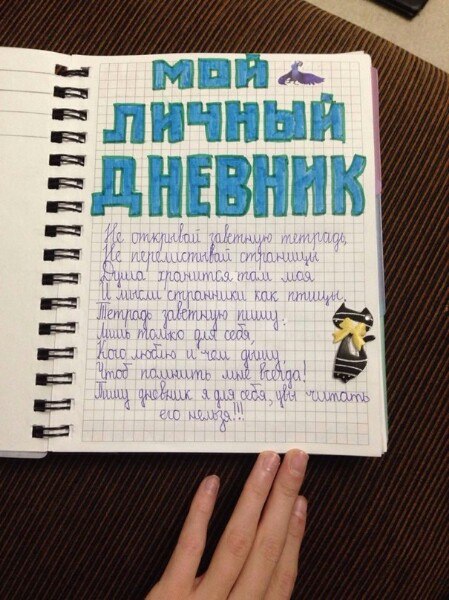 МОЙ
ЛИЧНЫЙ
ДНЕВНИК
Не открывай заветную тетрадь,
Не перелистывай страницы
Душа хранится там моя
И мысли странники как птицы.
Тетрадь заветную пишу.
Лишь только для себя,
Кого люблю и чем дышу,
Чтоб помнить мне всегда!
Пишу дневник я для себя, увы читать
его нельзя!!!